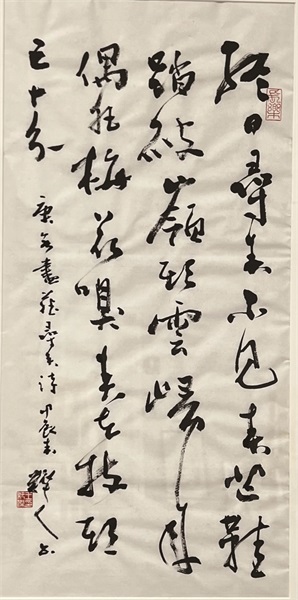 終日尋春不見春芒鞋
踏破嶺頭雲歸來
偶把梅花嗅春在枝頭
已十分
庚 書 尋春詩